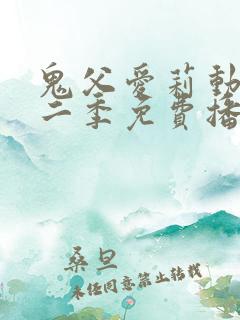 鬼父愛莉動
二季免費播
桑旦
未経同意禁止转载